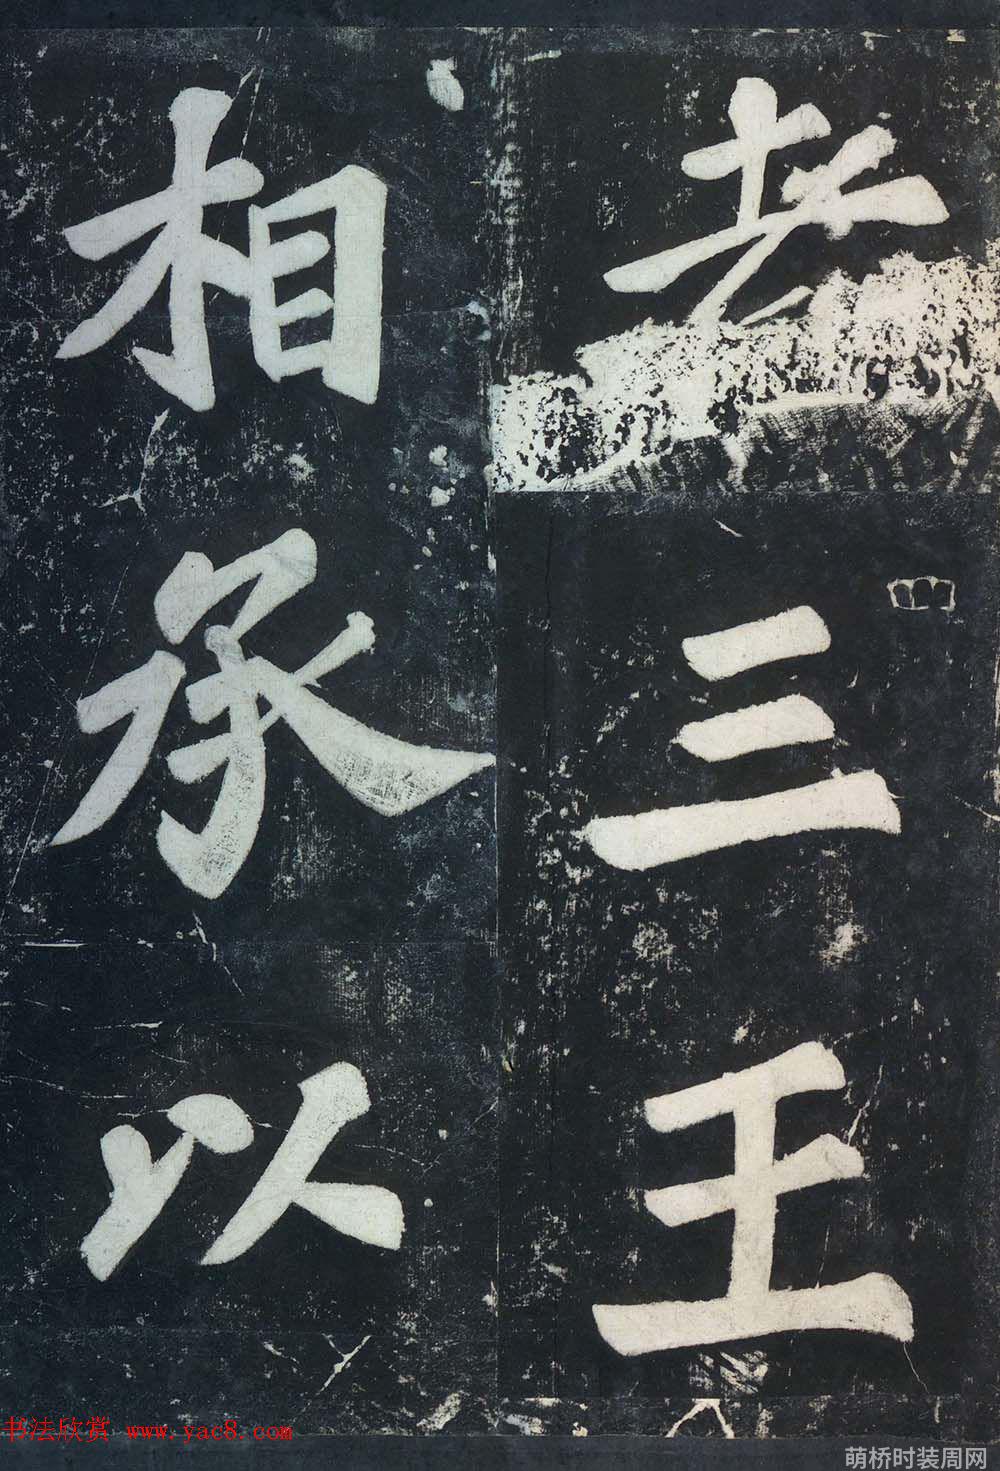 三王
相承以
书法欣赏 www.yac8.com
萌桥时装周网